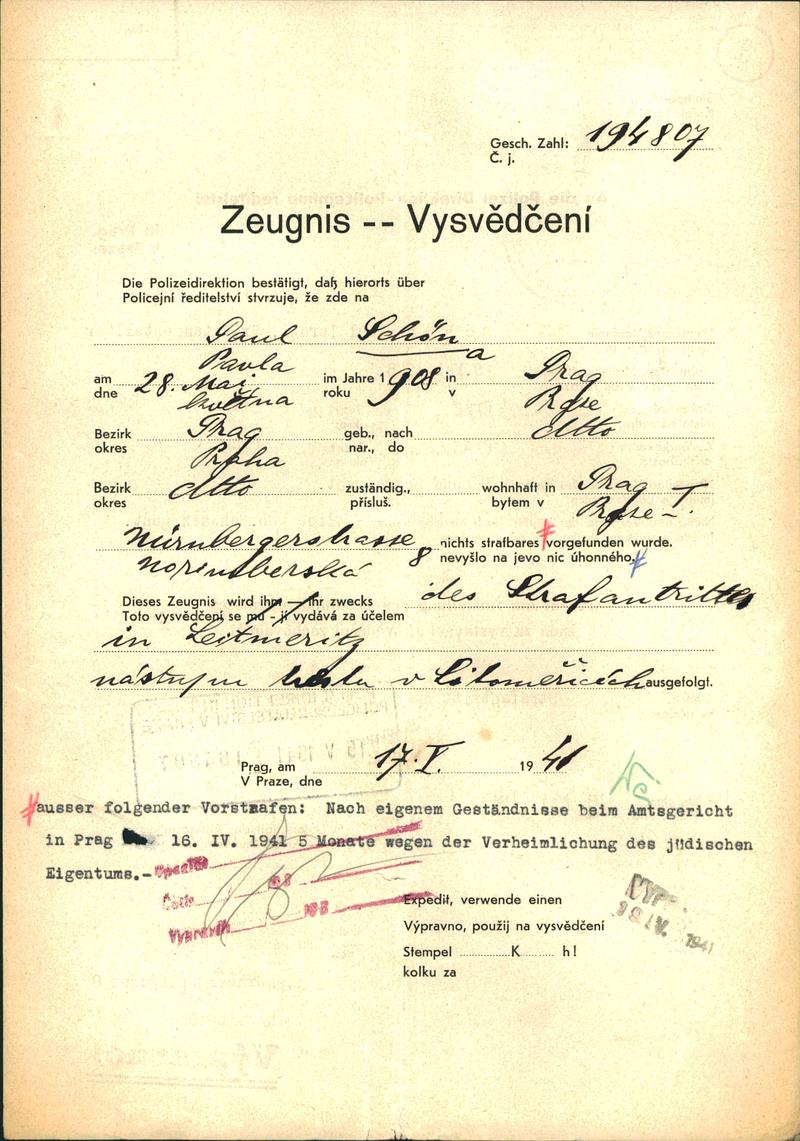 Gesch. Zahl: 194807
Č. j.
Zeugnis -- Vysvědčení
Die Polizeidirektion bestätigt, daß hierorts über
Policejní ředitelství stvrzuje, že zde na
Paul Schön
Pavla a
am 28. Mai im Jahre 1908 in Prag
dne května roku v Praze
Bezirk Prag geb., nach dtto
okres Praha nar., do
Bezirk dtto zuständig., wohnhaft in Prag I.
okres přísluš. bytem v Praze
Nürnbergerstrasse 8 nichts strafbares vorgefunden wurde.
Norimberská nevyšlo na jevo nic úhonného.
Dieses Zeugnis wird ihm - ihr zwecks des Strafantrittes
Toto vysvědčení se mu - jí vydává za účelem
in Leitmeritz
nástupu trestu v Litoměřicích ausgefolgt.
Prag, am 17. V. 1941
V Praze, dne
ausser folgender Vorstrafen: Nach eigenem Geständnisse beim Amtsgericht
in Prag 16. IV. 1941 5 Monate wegen der Verheimlichung des jüdischen
Eigentums.-
Opsáno
Četlo
Vypraveno
Expedit, verwende einen
Výpravno, použij na vysvědčení
Stempel K h!
kolku za
1941